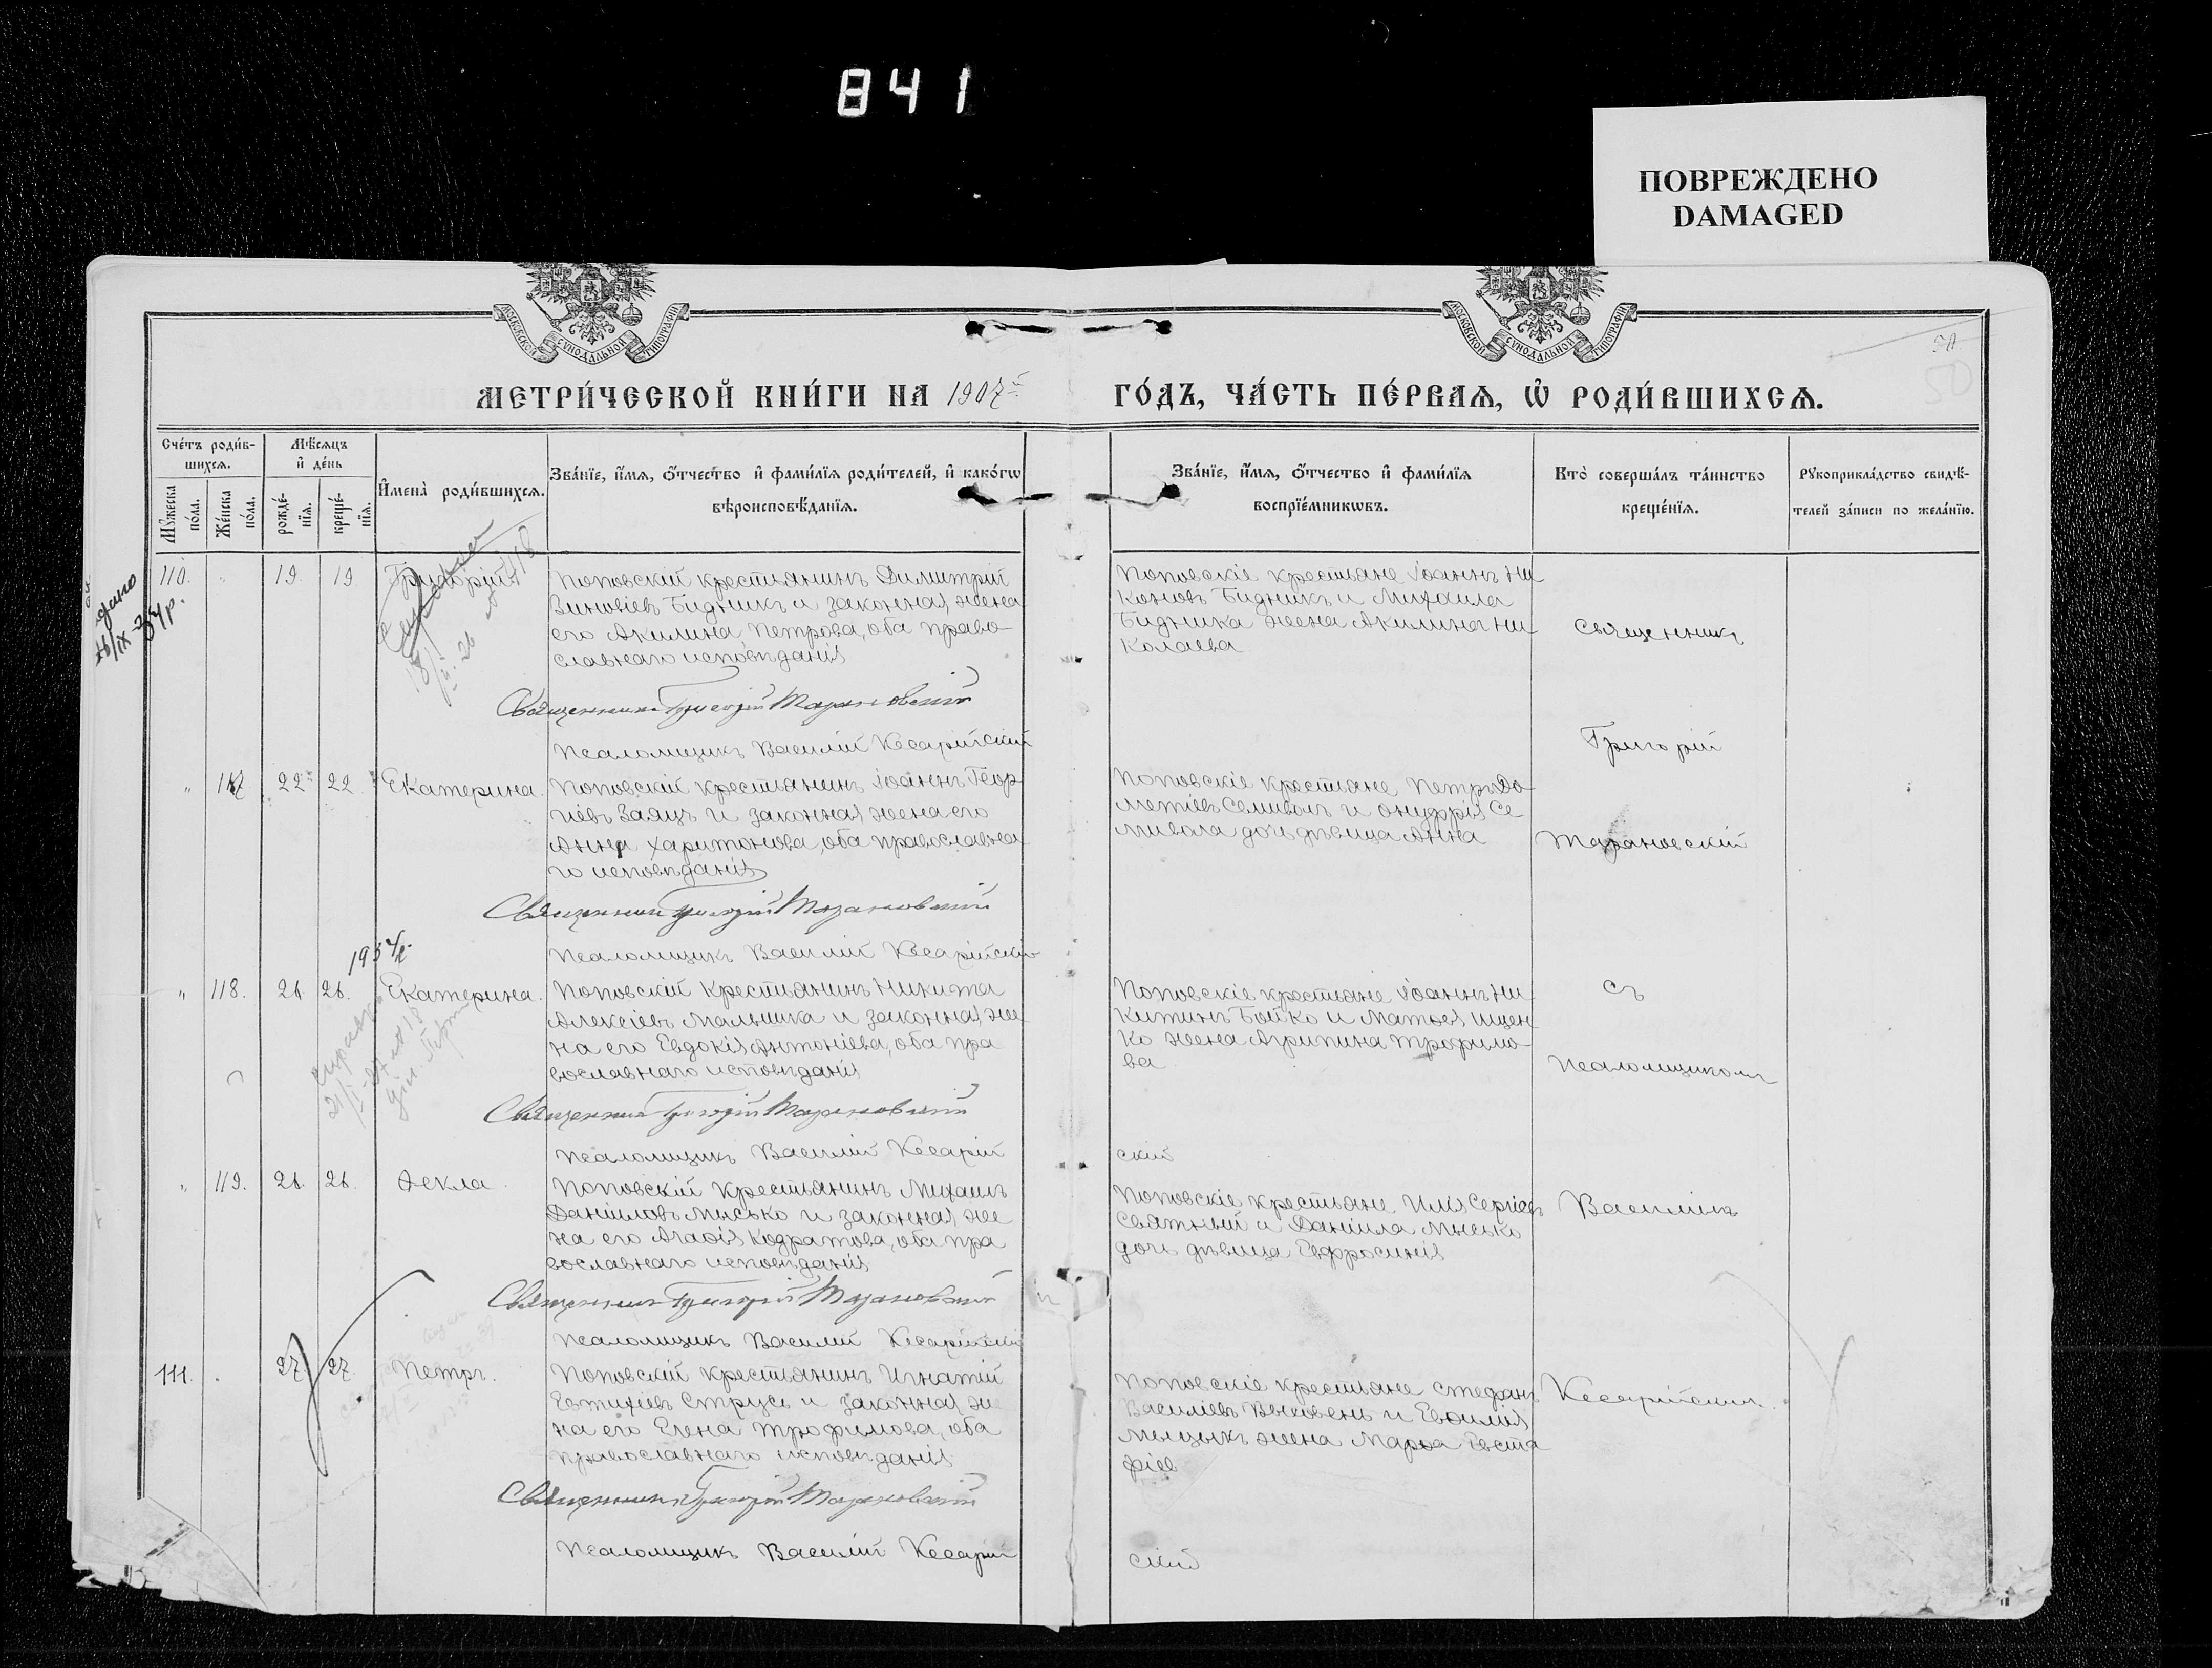 841
ПОВРЕЖДЕНО
DAMAGED
МОСКОВСКОЙ СѴНОДАЛЬНОЙ ТИПОГРАФІИ
МОСКОВСКОЙ СѴНОДАЛЬНОЙ ТИПОГРАФІИ
50
МЕТРИ́ЧЕСКОЙ КНИ́ГИ НА 1907
ГО́ДЪ, ЧА́СТЬ ПЕ́РВАѦ, Ѡ҆ РОДИ́ВШИХСѦ.
Сче́тъ роди́в-
шихсѧ.
Мꙋ́жеска по́ла.
Же́нска по́ла.
Мѣ́сѧцъ
и҆ де́нь
рожде́-нїѧ.
креще́-нїѧ.
И҆мена̀ роди́вшихсѧ.
Зва́нїе, и҆́мѧ, ѻ҆́тчество и҆ фами́лїѧ роди́телей, и҆ како́гѡ
вѣроисповѣ́данїѧ.
Зва́нїе, и҆́мѧ, ѻ҆́тчество и҆ фами́лїѧ
воспрїе́мникѡвъ.
Кто̀ соверша́лъ та́инство
креще́нїѧ.
Рꙋкоприкла́дство свидѣ́-
телей за́писи по жела́нїю.
110. " 19. 19 Григорій
Поповскій крестьянинъ Димитрій
Зиновіевъ Бидникъ и законная жена
его Акилина Петрова, оба право-
славнаго исповѣданія
Священникъ Григорій Тарановскій
Псаломщикъ Василій Кесарійскій
Поповскіе крестьяне Іоаннъ Ни-
коновъ Бидникъ и Михаила
Бидника жена Акилина Ни-
колаева
Священникъ
Григорій
" 117 22 22 Екатерина.
Поповскій крестьянинъ Іоаннъ Геор-
гіевъ Заяцъ и законная жена его
Анна Харитонова, оба православна-
го исповѣданія
Священникъ Григорій Тарановскій
Псаломщикъ Василій Кесарійскій
Поповскіе крестьяне Петръ До-
метіевъ Семиволъ и Онуфрія Се-
мивола дочь дѣвица Анна
Тарановскій
" 118. 26. 26. Екатерина.
Поповскій крестьянинъ Никита
Алексіевъ Малышка и законная же-
на его Евдокія Антоніева, оба пра-
вославнаго исповѣданія
Священникъ Григорій Тарановскій
Псаломщикъ Василій Кесарій
скій
Поповскіе крестьяне Іоаннъ Ни-
китинъ Бойко и Матѳея Ищен-
ко жена Агрипина Трофимо-
ва
съ
Псаломщикомъ
" 119. 26. 26. Ѳекла.
Поповскій крестьянинъ Михаилъ
Даніиловъ Мысько и законная же
на его Агаѳія Кодратова, оба пра
вославнаго исповѣданія
Священникъ Григорій Тарановскій
Псаломщикъ Василій Кесарійскій
Поповскіе крестьяне Илія Сергіевъ
Святный и Даніила Мысько
дочь дѣвица Евфросинія
Василіемъ
111. 27. 27. Петръ.
Поповскій крестьянинъ Игнатій
Евтихіевъ Струсь и законная же
на его Елена Трофимова, оба
православнаго исповѣданія
Священникъ Григорій Тарановскій
Псаломщикъ Василій Кесарій
скій
Поповскіе крестьяне Стефанъ
Василіевъ и Евѳимія
Мыцыкъ жена Марѳа Евста
фіев
Кесарійскимъ.